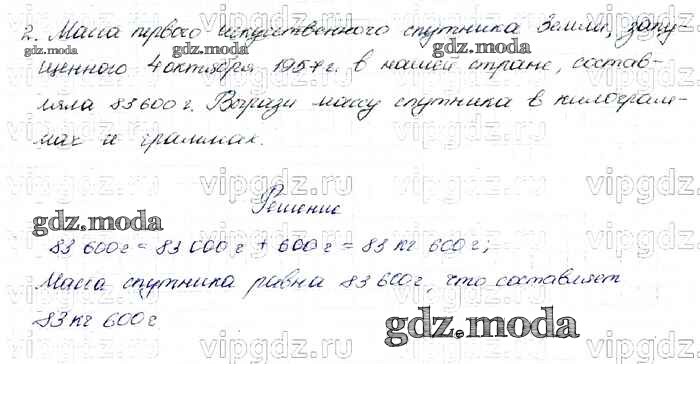 2. Масса первого искуственного спутника Земли, запу
щенного 4 октября 1957 г. в нашей стране, состав-
ляла 83 600 г. Вырази массу спутника в килограм-
мах и граммах.
Решение
83 600 г = 83 000 г + 600 г = 83 кг 600 г;
Масса спутника равна 83 600 г, что составляет
83 кг 600 г
gdz.moda
gdz.moda
gdz.moda
gdz.moda
gdz.moda
vipgdz.ru
vipgdz.ru
vipgdz.ru
vipgdz.ru
vipgdz.ru
vipgdz.ru
vipgdz.ru
vipgdz.ru
vipgdz.ru
vipgdz.ru
vipgdz.ru
vipgdz.ru